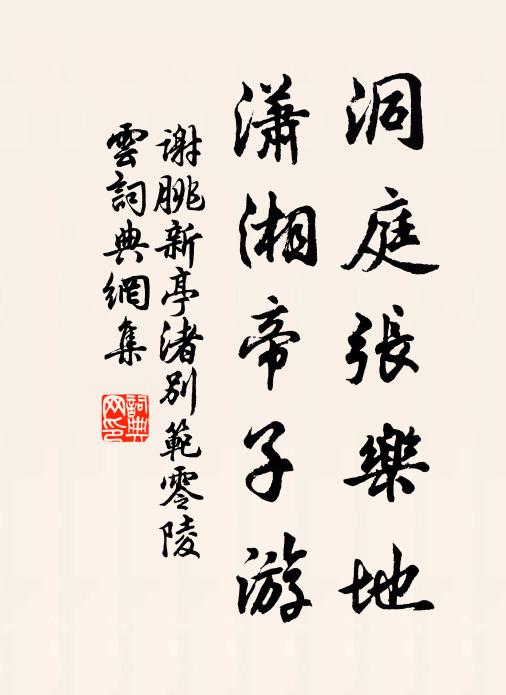 洞庭張樂地
瀟湘帝子游
謝朓新亭渚別範零陵
雲詞典網集
詞典
网印